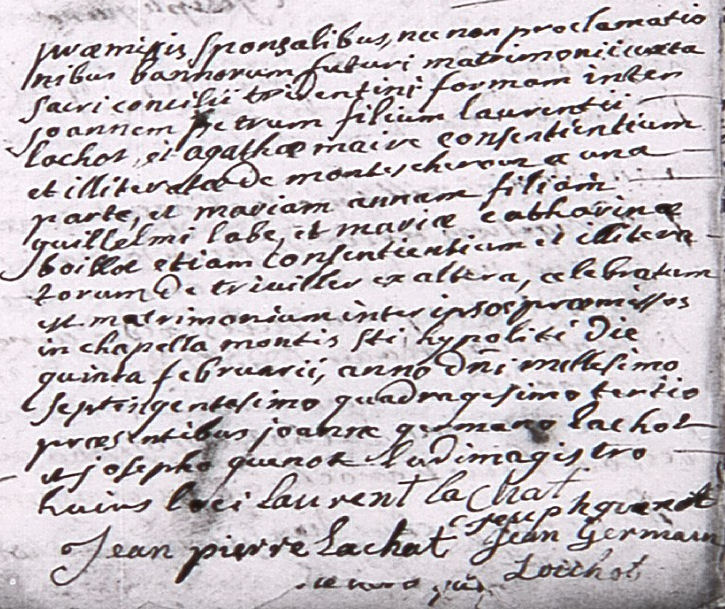 præmissis sponsalibus, nec non proclamatio
nibus bannorum futuri matrimonii iuxta
sacri concilii tridentini formam inter
joannem petrum filium laurentii
lachat, et agathæ maire consentientium
et illiteratæ de montescheroux ex una
parte, et mariam annam filiam
guillelmi labe, et mariæ catharinæ
boillot etiam consentientium et illitera
torum de triviller ex altera, celebratum
est matrimonium inter ipsos præmissos
in chapella montis sti hypoliti die
quinta februarii, anno dñi millesimo
septingentesimo quadragesimo tertio
præsentibus joanne germano lachot
et josepho quenot ludimagistro
huius loci laurent lachat
Jeuph quenot
Jean pierre Lachat Jean Germain
Lochot